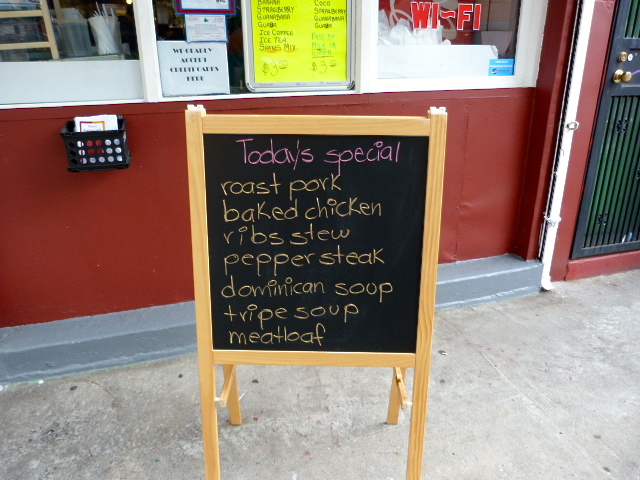 BANANA
STRAWBERRY
GUANABANA
GUABA
ICE COFFEE
ICE TEA
SHAKES MIX
COCO
STRAWBERRY
GUANABANA
GUABA
WE GLADLY
ACCEPT
CREDIT CARDS
HERE
WI-FI
Today's special
roast pork
baked chicken
ribs stew
pepper steak
dominican soup
tripe soup
meatloaf